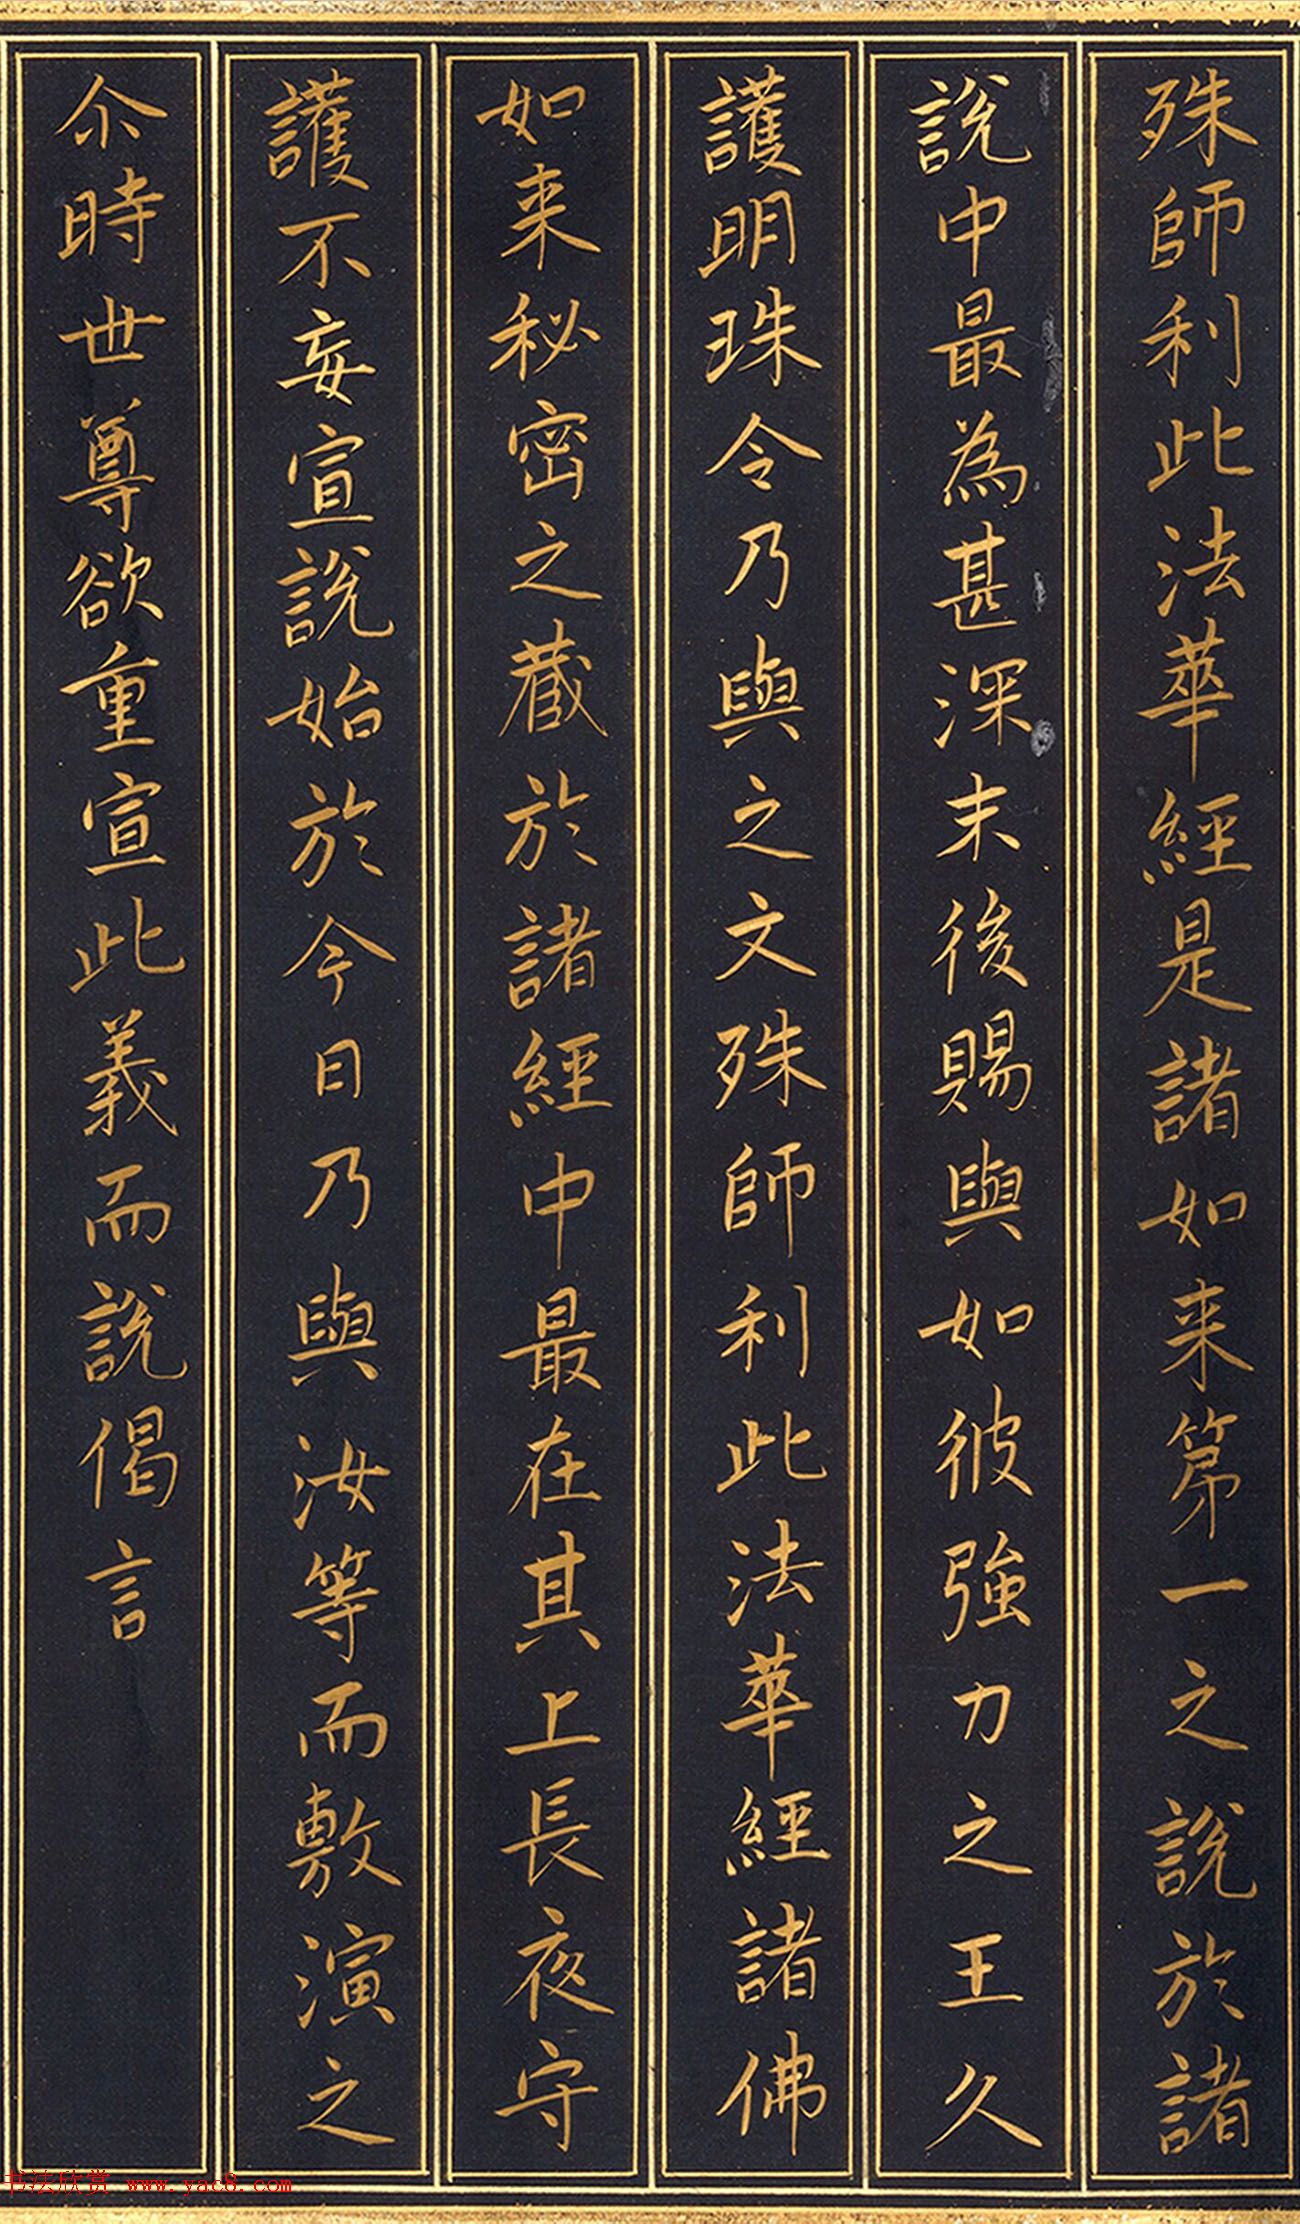 殊師利此法華經是諸如来第一之說於諸
說中最為甚深末後賜與如彼強力之王久
護明珠今乃與之文殊師利此法華經諸佛
如来秘密之藏於諸經中最在其上長夜守
護不妄宣說始於今日乃與汝等而敷演之
尒時世尊欲重宣此義而說偈言
书法欣赏 www.yac8.com